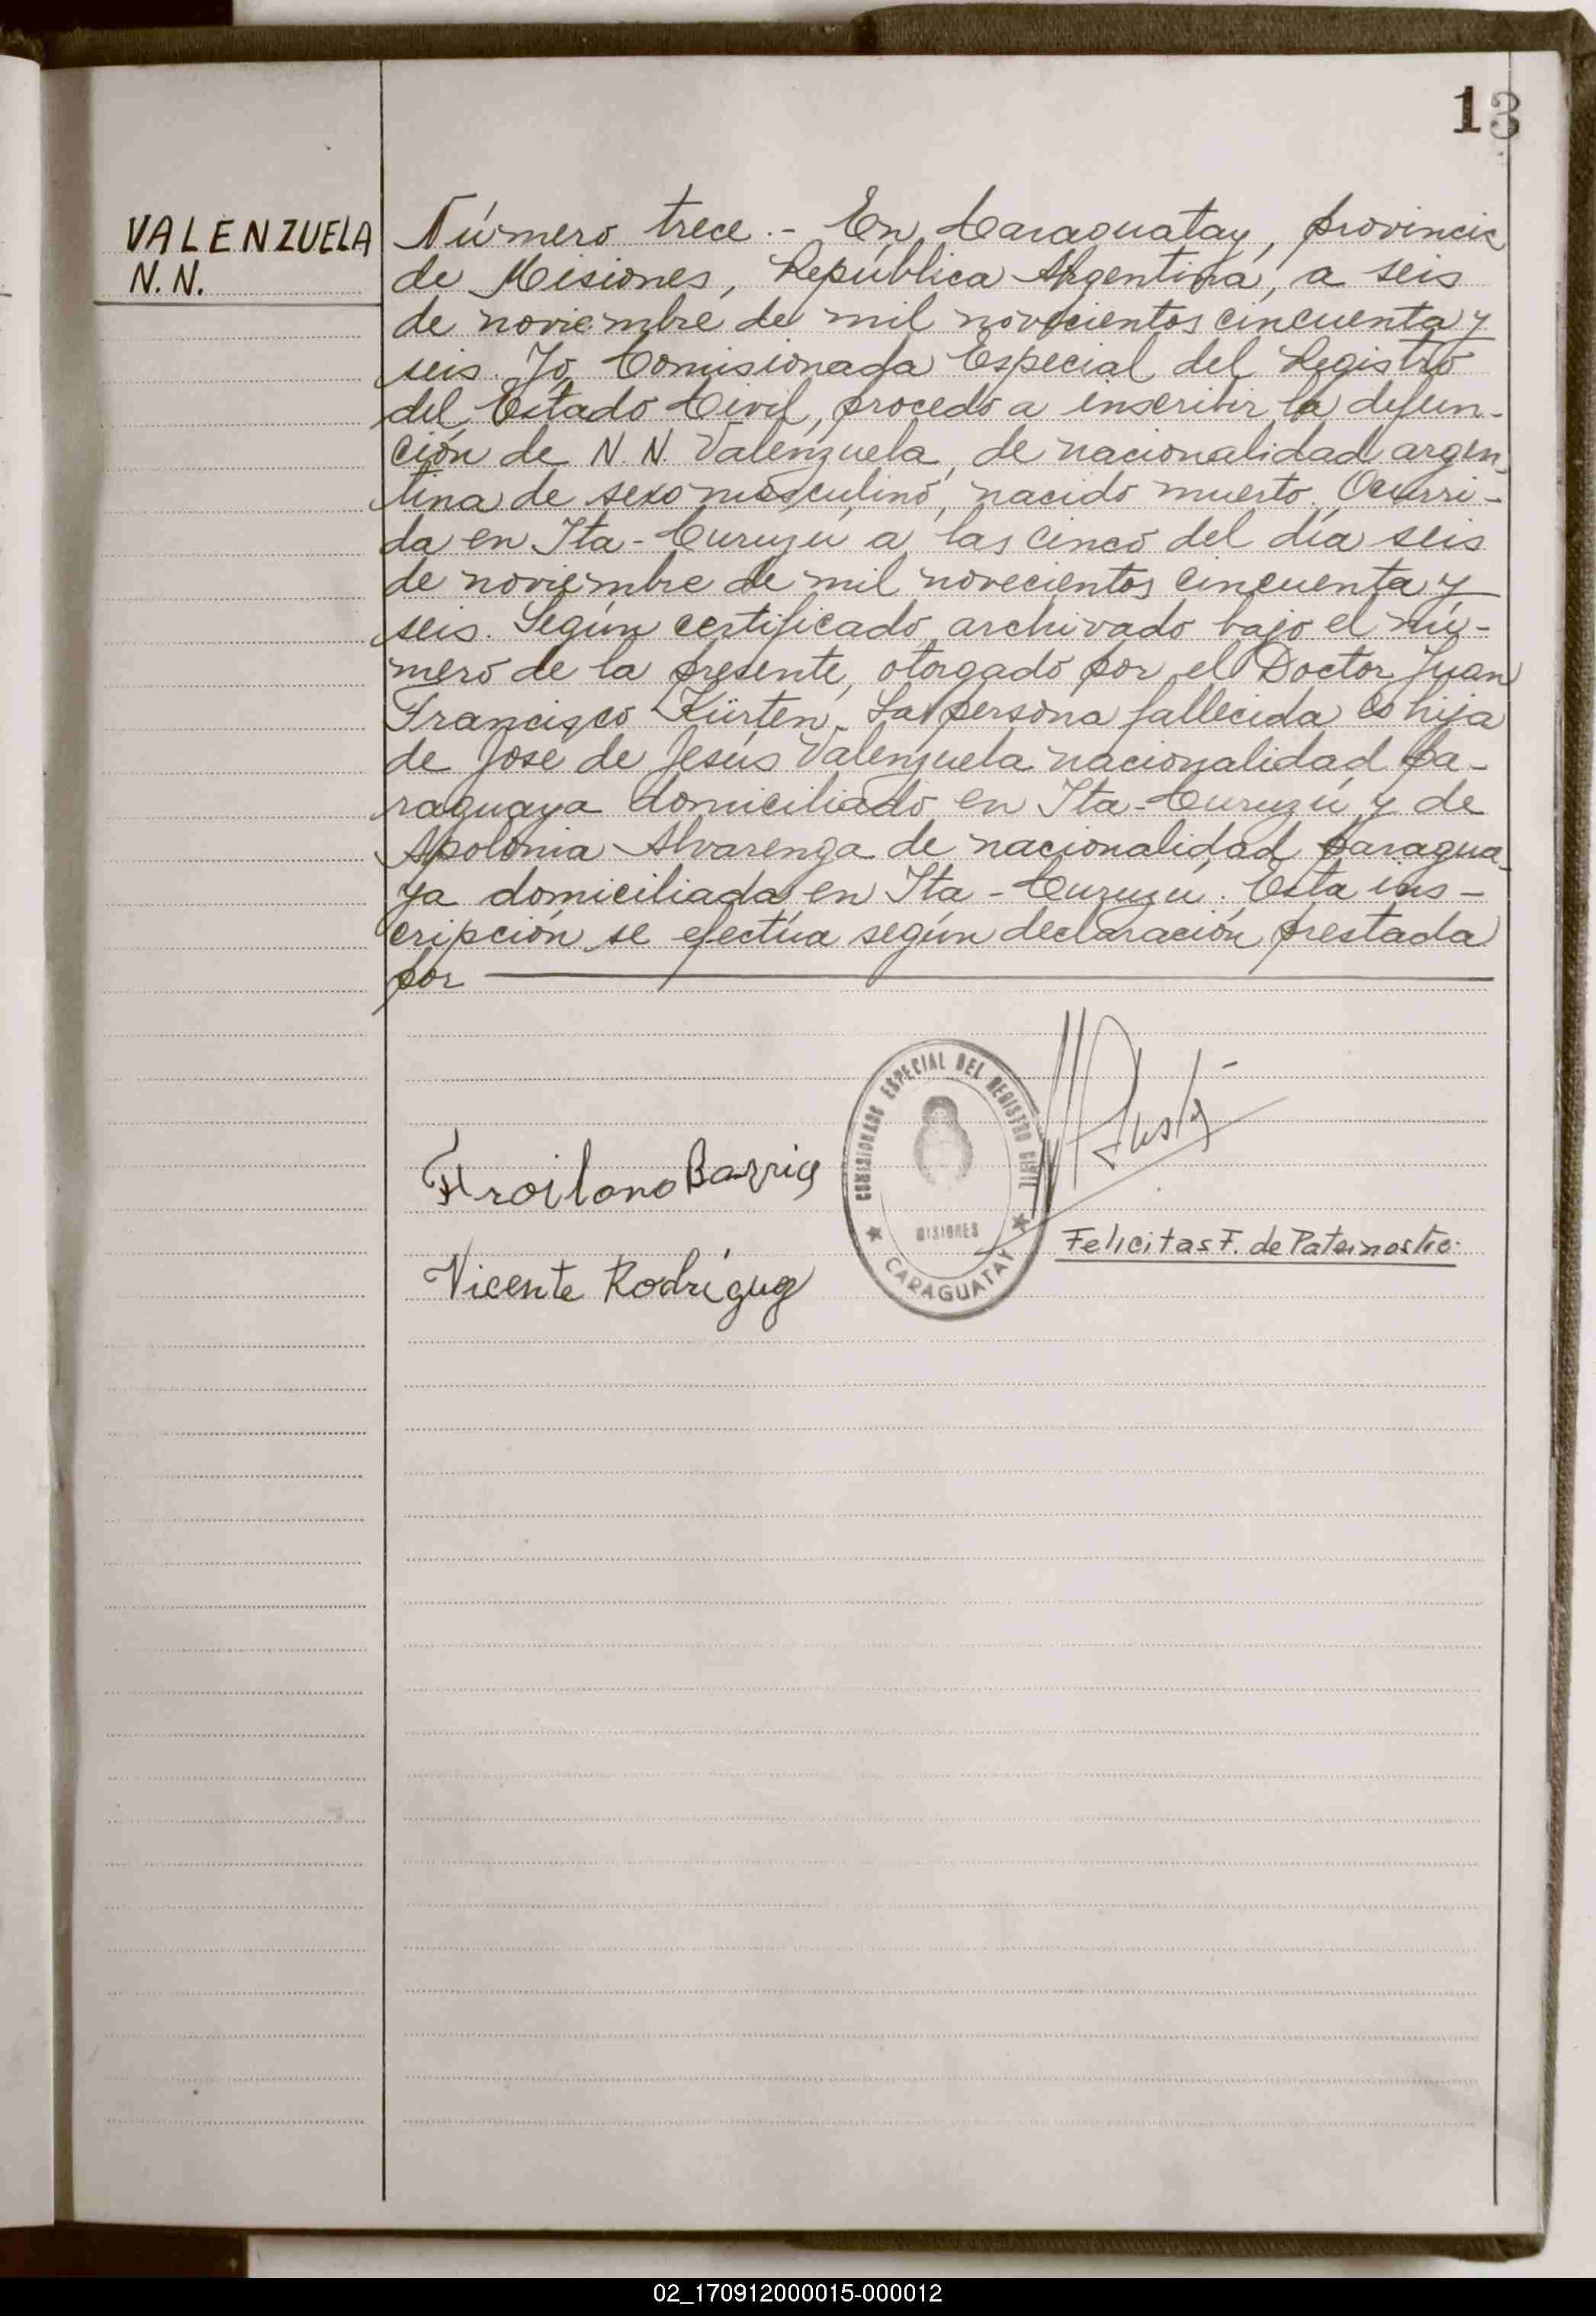 13
VALENZUELA
N. N.
Número trece.- En Caraguatay, provincia
de Misiones, República Argentina, a seis
de noviembre de mil novecientos cincuenta y
seis. Yo, Comisionada Especial del Registro
del Estado Civil, procedo a inscribir la defun-
ción de N. N. Valenzuela, de nacionalidad argen-
tina de sexo masculino, nacido muerto. Ocurri-
da en Ita-Curuzú a las cinco del día seis
de noviembre de mil novecientos cincuenta y
seis. Según certificado archivado bajo el nú-
mero de la presente, otorgado por el Doctor Juan
Francisco Kürten. La persona fallecida es hija
de José de Jesús Valenzuela nacionalidad pa-
raguaya domiciliado en Ita-Curuzú y de
Apolonia Alvarenga de nacionalidad paragua-
ya domiciliada en Ita-Curuzú. Esta ins-
cripción se efectúa según declaración prestada
por
COMISIONADO ESPECIAL DEL REGISTRO CIVIL
MISIONES
★ CARAGUATAY ★
Froilano
Vicente Rodríguez
Felicitas F. de Paternostro.
02_170912000015-000012